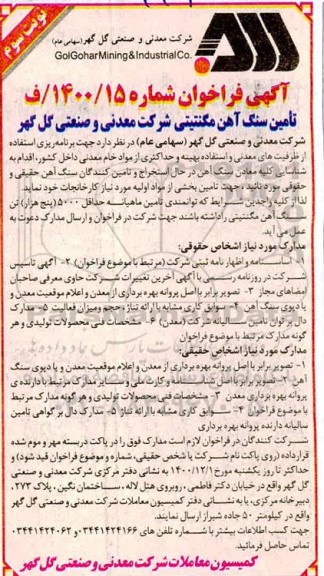 نوبت سوم
شرکت معدنی و صنعتی گل گهر (سهامی عام)
GolGoharMining&IndustrialCo.
آگهی فراخوان شماره ۱۴۰۰/۱۵/ف
تامین سنگ آهن مگنتیتی شرکت معدنی و صنعتی گل گهر
شرکت معدنی و صنعتی گل گهر (سهامی عام) در نظر دارد جهت برنامه‌ریزی استفاده
از ظرفیت های معدنی و استفاده بهینه و حداکثری از مواد خام معدنی داخل کشور، اقدام به
شناسایی کلیه معادن سنگ آهن در حال استخراج و تامین کنندگان سنگ آهن حقیقی و
حقوقی مورد تائید، جهت تامین بخشی از مواد اولیه مورد نیاز کارخانجات خود نماید.
لذا از کلیه واجدین شرایط که توانمندی تامین ماهیانه حداقل ۵۰۰۰ (پنج هزار) تن
سنگ آهن مگنتیتی را داشته باشند جهت شرکت در فراخوان و ارسال مدارک دعوت به
عمل می آید.
مدارک مورد نیاز اشخاص حقوقی:
۱- اساسنامه و اظهار نامه ثبتی شرکت (مرتبط با موضوع فراخوان) ۲- آگهی تاسیس
شرکت در روزنامه رسمی با آگهی آخرین تغییرات شرکت حاوی معرفی صاحبان
امضاهای مجاز ۳- تصویر برابر با اصل پروانه بهره برداری از معدن و اعلام موقعیت معدن و
یا دپوی سنگ آهن ۴- سوابق کاری مشابه با ارائه تناژ بار خروجی و میزان فعالیت ۵- مدارک
دال بر توان تامین سالیانه شرکت (معدن) ۶- مشخصات فنی محصولات تولیدی و هر
گونه مدارک مرتبط با موضوع فراخوان
مدارک مورد نیاز اشخاص حقیقی:
۱- تصویر برابر با اصل پروانه بهره برداری از معدن و اعلام موقعیت معدن و یا دپوی سنگ
آهن ۲- تصویر برابر با اصل شناسنامه و کارت ملی و سایر مدارک مرتبط با دارنده ی
پروانه بهره برداری معدن ۳- مشخصات فنی محصولات تولیدی و هر گونه مدارک مرتبط
با موضوع فراخوان ۴- سوابق کاری مشابه با ارائه تناژ ۵- مدارک دال بر گواهی تامین
سالیانه دارنده پروانه بهره برداری
شرکت کنندگان در فراخوان لازم است مدارک فوق را در پاکت دربسته مهر و موم شده
قرار داده (روی پاکت نام شرکت یا شخص حقیقی، شماره و موضوع فراخوان قید شود) و
حداکثر تا روز یکشنبه مورخ ۱۴۰۰/۱۲/۱ به نشانی دفتر مرکزی شرکت معدنی و صنعتی
گل گهر واقع در خیابان دکتر فاطمی، روبروی هتل لاله، ساختمان نگین، پلاک ۲۷۳،
دبیرخانه مرکزی، یا به نشانی دفتر کمیسیون معاملات شرکت معدنی و صنعتی گل گهر
واقع در کیلومتر ۵۰ جاده شیراز ارسال نمایند.
جهت کسب اطلاعات بیشتر با شماره تلفن های ۰۳۴۴۱۴۲۴۱۶۶ و ۰۳۴۴۱۴۲۴۰۶۲
تماس حاصل فرمائید.
کمیسیون معاملات شرکت معدنی و صنعتی گل گهر